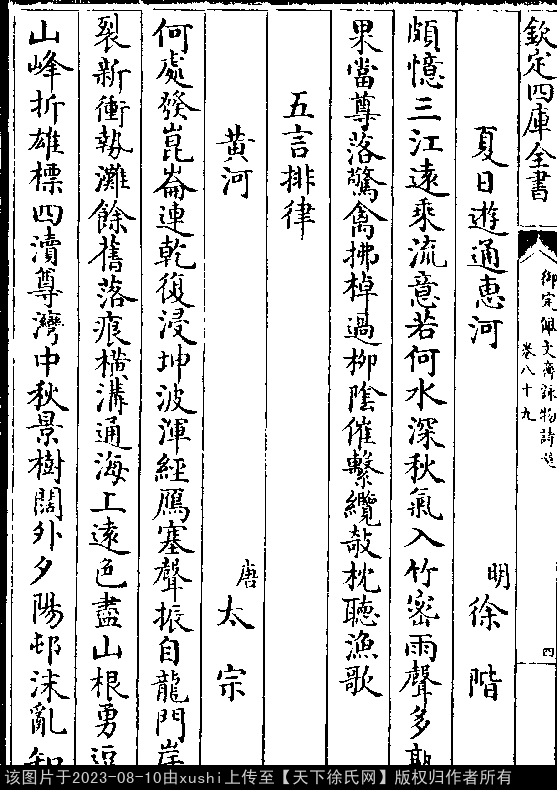 欽定四庫全書
御定佩文齋詠物詩選
卷八十九
四
夏日遊通惠河
明徐階
頗憶三江遠乘流意若何水深秋氣入竹密雨聲多
果當尊落驚禽拂棹過柳陰催繫纜敲枕聽漁歌
五言排律
黃河
唐太宗
何處發崑崙連乾復浸坤波渾經鴈塞聲振自龍門岸
裂新衝勢灘餘舊落痕橫溝通海上遠色盡山根勇逗
山峰折雄標四瀆尊灣中秋景樹闊外夕陽邨沫亂
该图片于2023-08-10由xushi上传至【天下徐氏网】版权归作者所有